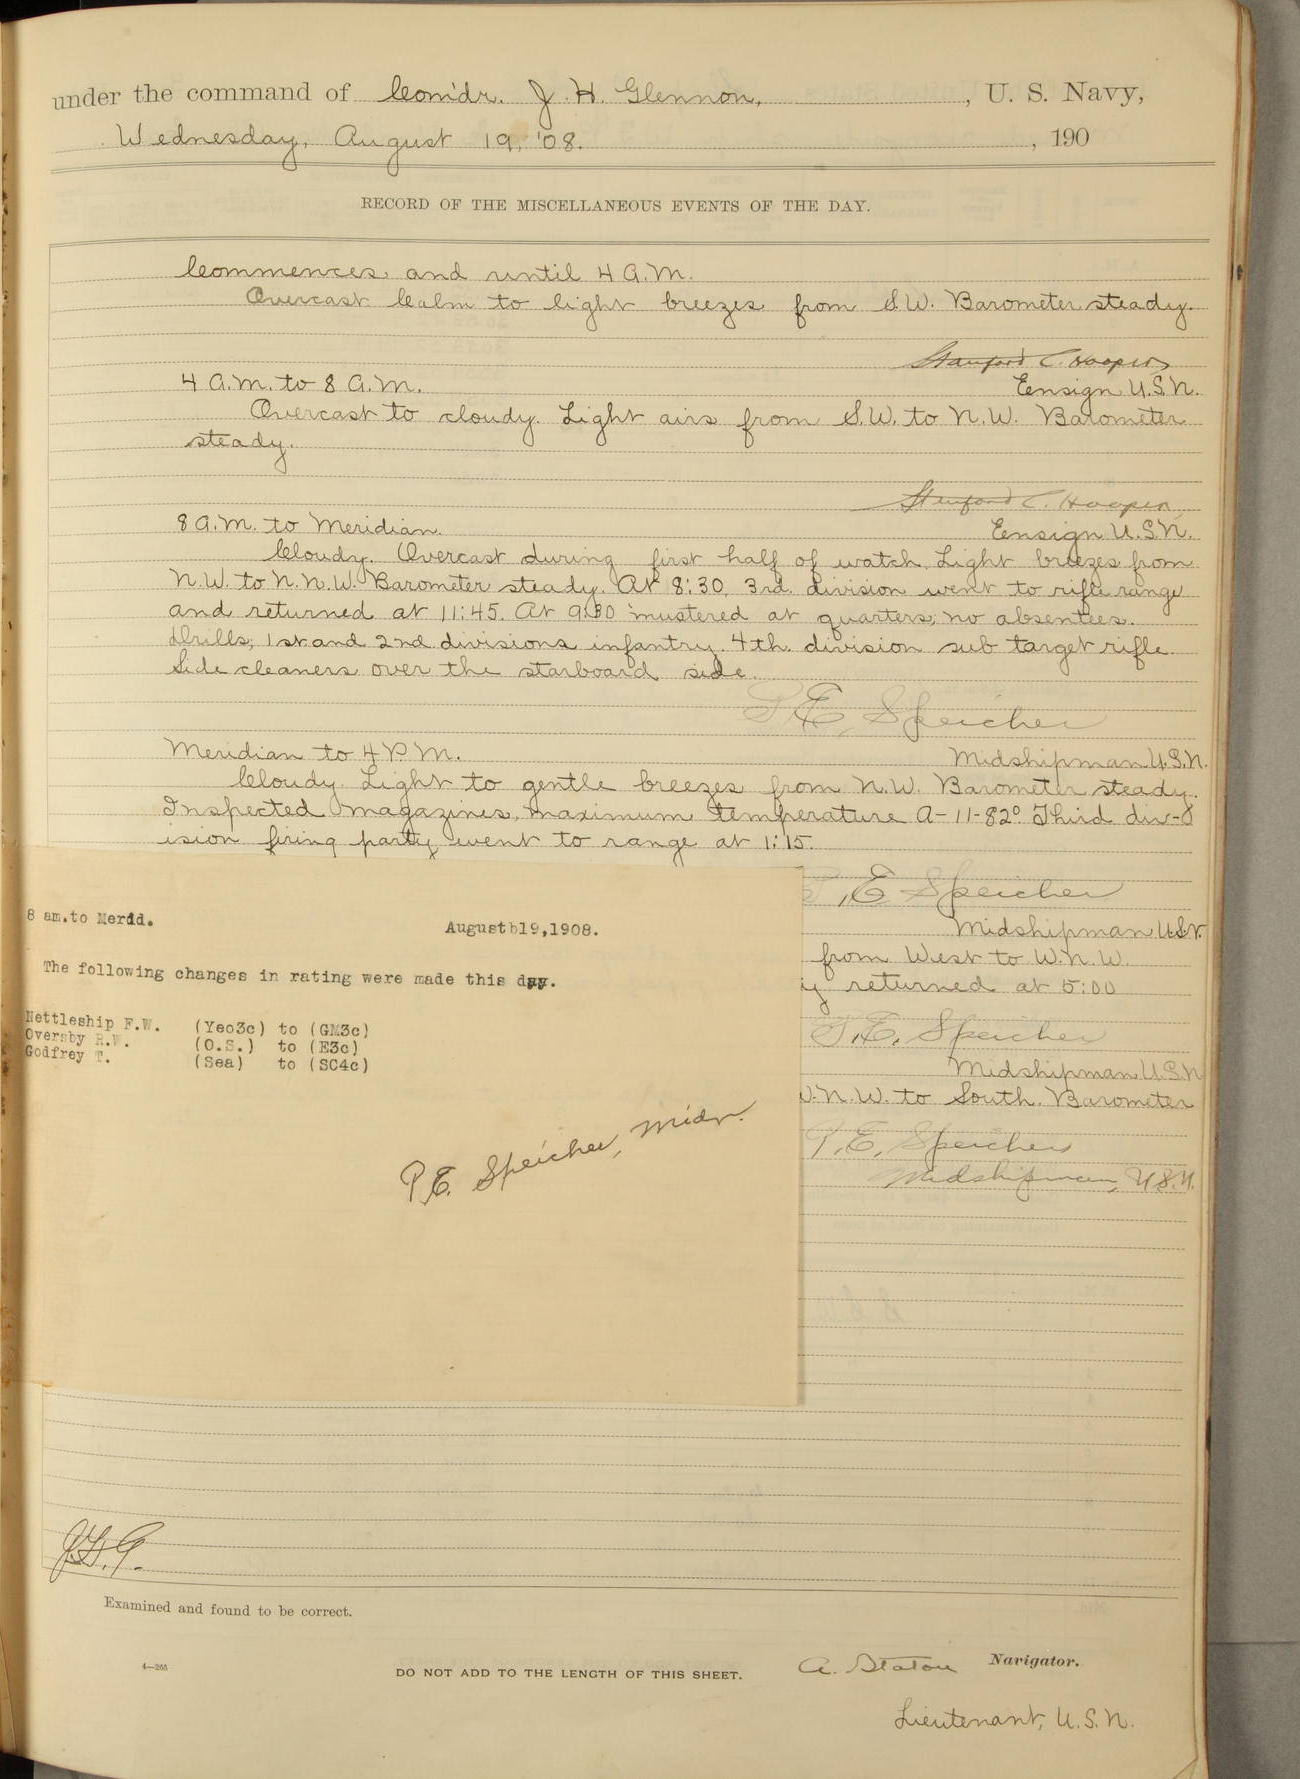 under the command of Comdr. J. H. Glennon, , U. S. Navy,
Wednesday, August 19, '08. , 190
RECORD OF THE MISCELLANEOUS EVENTS OF THE DAY.
Commences and until 4 A.M.
Overcast Calm to light breezes from S.W. Barometer steady.
Stanford C. Hooper,
4 A.M. to 8 A.M. Ensign U.S.N.
Overcast to cloudy. Light airs from S.W. to N.W. Barometer
steady.
Stanford C. Hooper,
8 A.M. to Meridian. Ensign U.S.N.
Cloudy. Overcast during first half of watch. Light breezes from
N.W. to N.N.W. Barometer steady. At 8:30, 3rd. division went to rifle range
and returned at 11:45. At 9:30 mustered at quarters; no absentees.
Drills; 1st and 2nd divisions infantry. 4th. division sub target rifle.
Side cleaners over the starboard side.
P.E. Speicher
Meridian to 4 P.M. Midshipman U.S.N.
Cloudy. Light to gentle breezes from N.W. Barometer steady.
Inspected magazines, maximum temperature A-11-82° Third div-
ision firing party went to range at 1:15.
P.E. Speicher
Midshipman U.S.N.
from West to W.N.W.
y returned at 5:00
P.E. Speicher
Midshipman U.S.N
W.N.W. to South. Barometer
P.E. Speicher
Midshipman, U.S.N.
8 am.to Merid.
Augustbl9,1908.
The following changes in rating were made this day.
Nettleship F.W. (Yeo3c) to (GM3c)
Oversby R.W. (O.S.) to (E3c)
Godfrey T. (Sea) to (SC4c)
P.E. Speicher, Midr.
J.H.G.
Examined and found to be correct.
4—265
DO NOT ADD TO THE LENGTH OF THIS SHEET.
A. Staton Navigator.
Lieutenant, U.S.N.